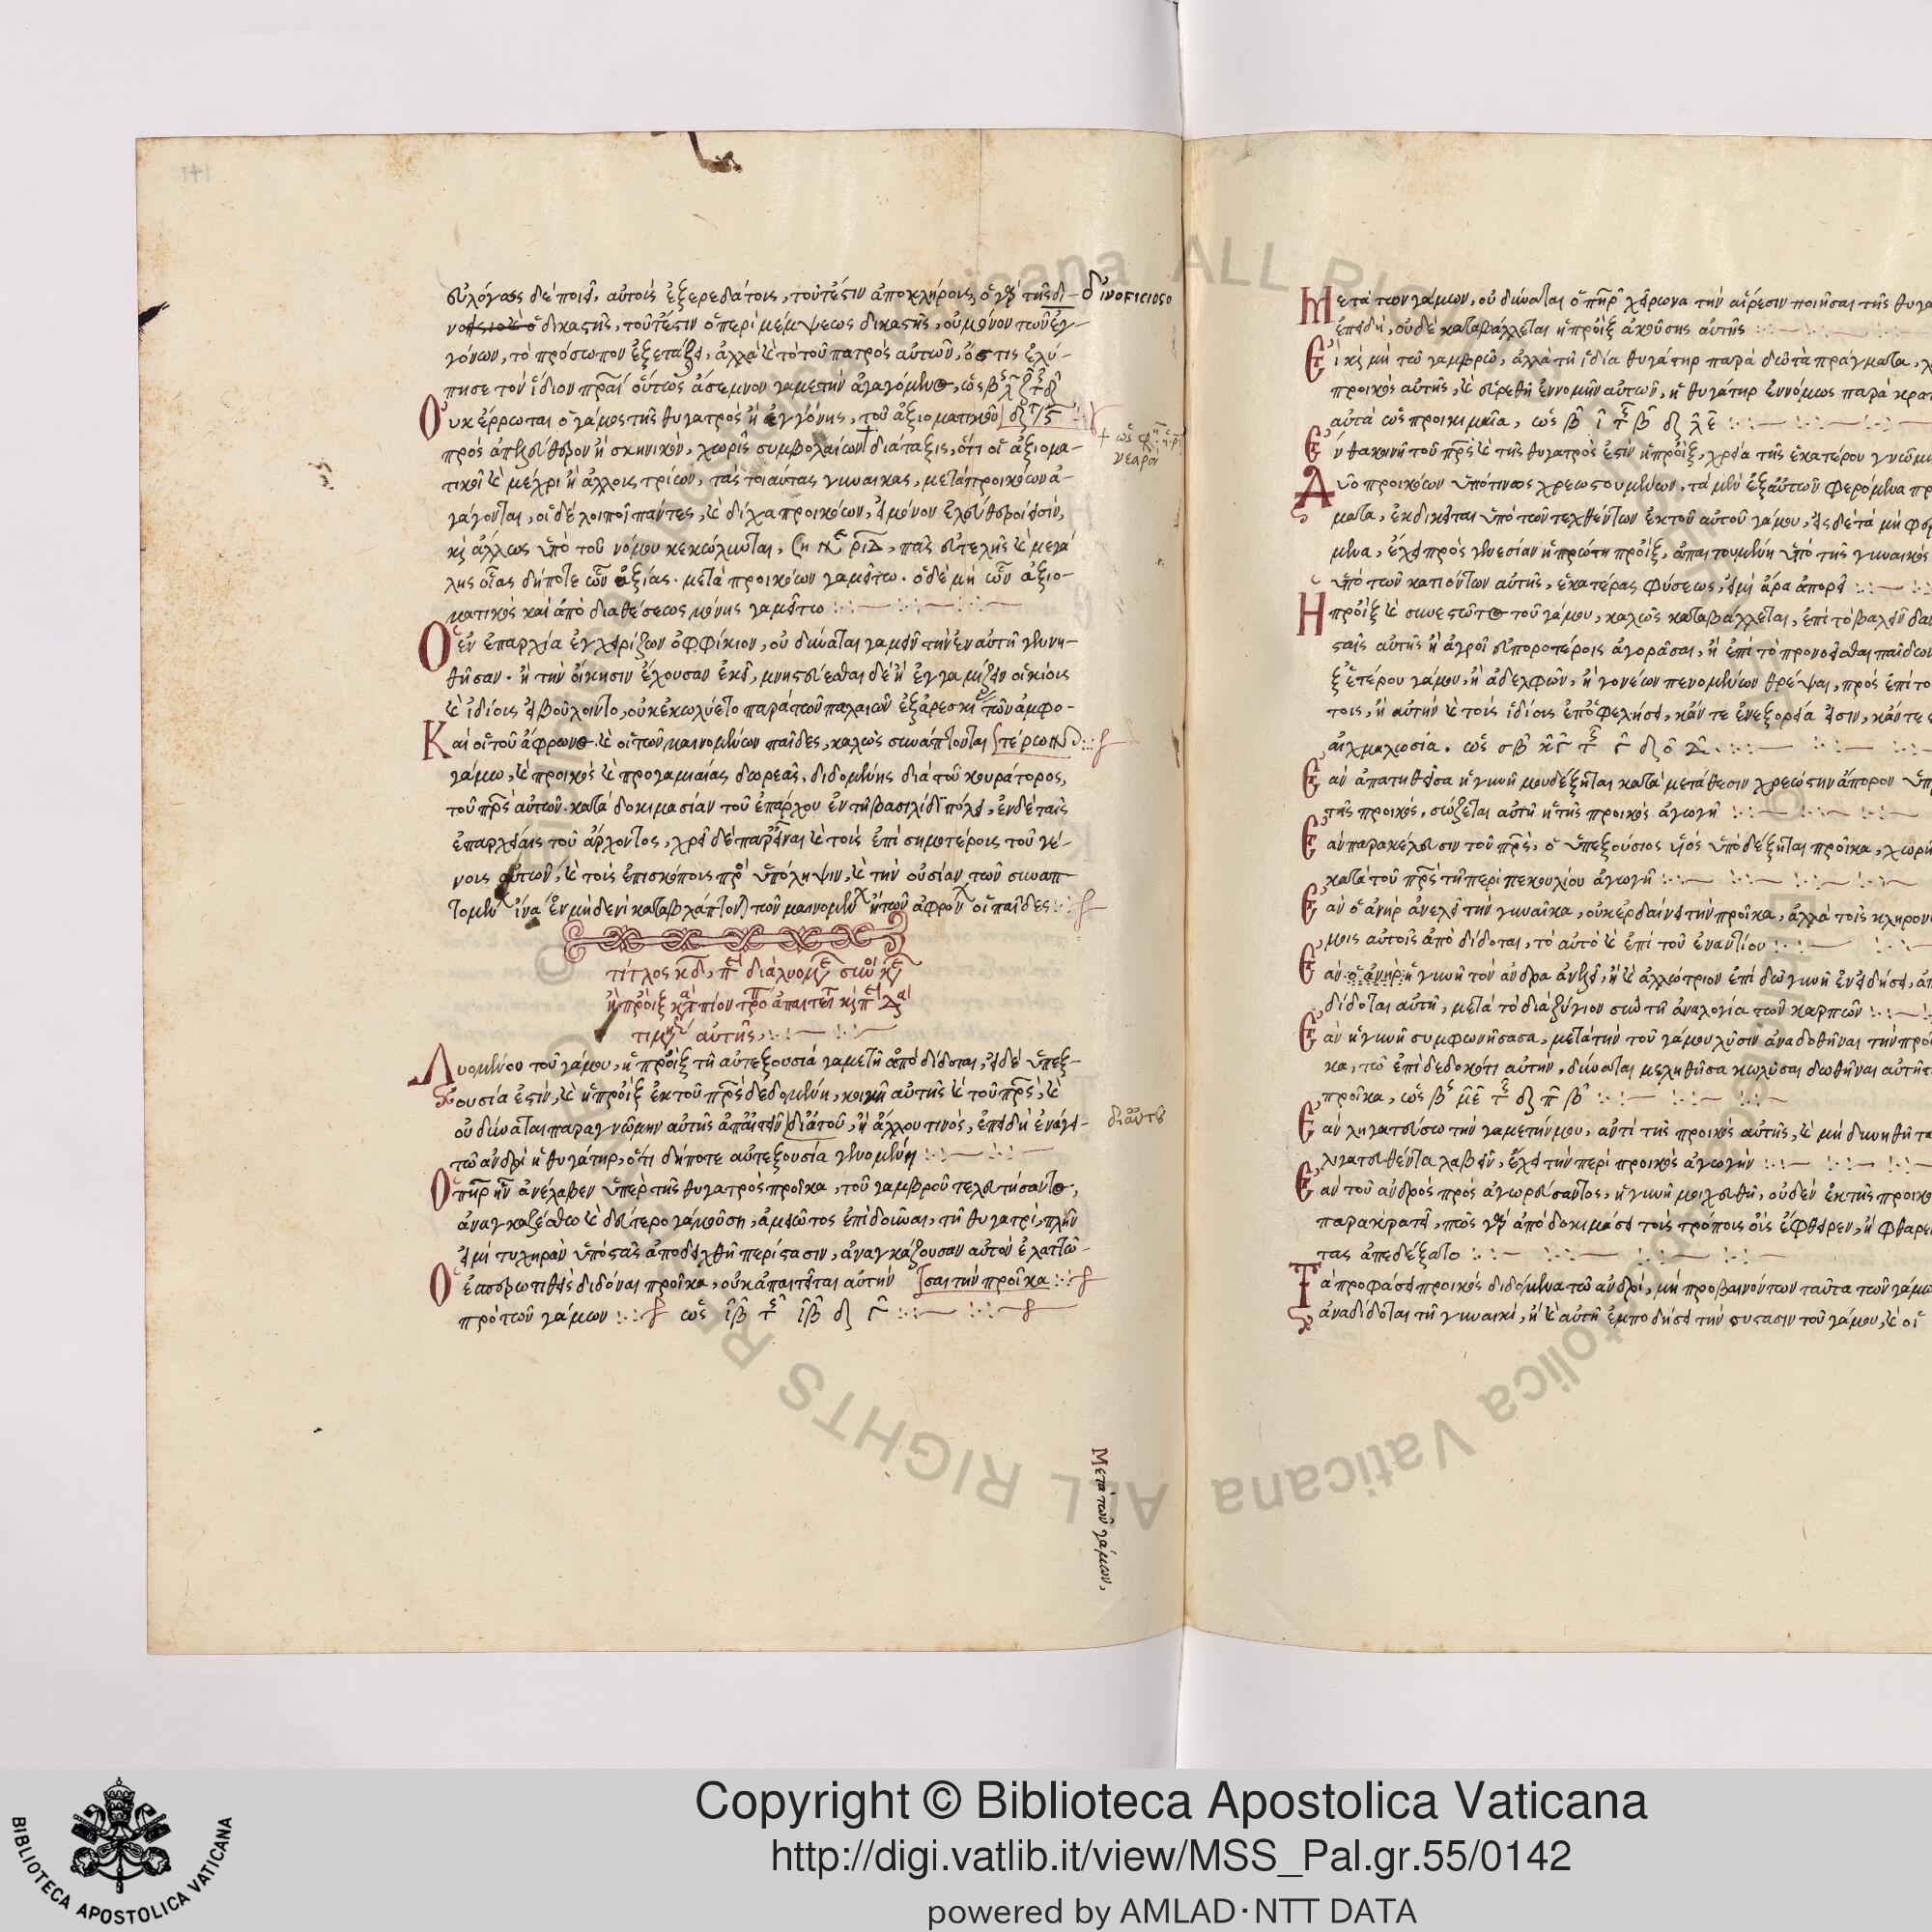 εὐλόγως δὲ ποιεῖ, αὐτοὺς ἐξερεδάτους, τοῦτέστιν ἀποκλήρους, ὁ γὰρ τῆς δὶ-
δ' ἰνοficioso
δικαστὴς, τουτέστιν ὁ περὶ μέμψεως δικαστὴς, οὐ μόνον τῶν ἐγ-
γόνων, τὸ πρόσωπον ἐξετάζει, ἀλλὰ καὶ τὸ τοῦ πατρὸς αὐτῶν, ὅστις ἐλύ-
πησε τὸν ἴδιον οὕτως ἄσεμνον γαμετὴν ἀγαγόμενος, ὡς
Οὐκ ἔρρωται ὁ γάμος τῆς θυγατρὸς ἢ ἐγγόνης, τοῦ ἀξιοματικοῦ
πρὸς ἀπελεύθερον ἢ σκηνικὸν, χωρὶς συμβολαίων διάταξις, ὅτι οἱ ἀξιομα-
νεαρὰ
τικοὶ καὶ μέχρι ἢ ἀλλουστρίων, τὰς τοιαύτας γυναικας, μετὰ προικώων ἀ-
γάγονται, οἱ δὲ λοιποὶ πάντες, καὶ δίχα προικώων, εἰ μόνον ἐλεύθεροι εἰσὶν,
κἰ ἄλλως ὑπὸ τοῦ νόμου κεκώλυνται, πᾶς εὐτελὴς καὶ μεγά
λης οἵας δήποτε ὢν ἀξίας. μετὰ προικώων γαμείτω. ὁ δὲ μὴ ὢν ἀξιο-
ματικὸς καὶ ἀπὸ διαθέσεως μόνης γαμείτω
Ὁ ἐν ἐπαρχία ἐγχειρίζων ὀφφίκιον, οὐ δύναται γαμεῖν τὴν ἐν αὐτῆ γενη-
θῆσαν. ἢ τὴν οἴκησιν ἔχουσαν ἐκεῖ, μνηστεύεσθαι δὲ ἢ ἐγγαμίζειν οἰκίοις
καὶ ἰδίοις εἰ βούλοιντο, οὐκ ἐκωλύετο παρὰ τῶν παλαιῶν ἐξ ἀρεσκι τῶν ἀμφο-
Καὶ οἱ τοῦ ἄφρωνος καὶ οἱ τῶν μαινομένων παῖδες, καλῶς συνάπτονται τέρων
γάμω, καὶ προικὸς καὶ προγαμιαίας δωρεᾶς, διδομένης διὰ τοῦ κουράτορος,
τοῦ πρς αὐτῶν. κατὰ δοκιμασίαν τοῦ ἐπάρχου ἐν τῆ βασιλίδι πόλει, ἐν δὲ ταῖς
ἐπαρχείαις τοῦ ἄρχοντος, χρεὶ δὲ παρεῖναι καὶ τοὺς ἐπὶ σημοτέροις τοῦ γέ-
νους αὐτῶν, καὶ τοὺς ἐπισκόπους πρὸ ὑπόληψιν, καὶ τὴν οὐσίαν τῶν συναπ
τομεν ἵνα ἐν μηδενὶ καταβλάπτον τῶν μαινομεν ἢ τῶν ἀφρον οἱ παῖδες
τίτλος κδ, διαλυομ
ἡ προὶξ
τιμης αὐτῆς
Λυομένου τοῦ γάμου, ἡ προὶξ τῆ αὐτεξουσία γαμετῆ ἀπὸ δίδοται, εἰ δὲ ὑπεξ-
ουσία ἐστὶν, καὶ ἡ προὶξ ἐκ τοῦ πρς δεδομένη, κοινὴ αὐτῆς καὶ τοῦ πρς, καὶ
οὐ δύναται παρὰ γνώμην αὐτῆς ἀπαιτεῖν δι ἀτοῦ, ἢ ἄλλου τινὸς, ἐπειδὴ ἐνάγει-
τῶ ἀνδρὶ ἡ θυγάτηρ, ὅτι δήποτε αὐτεξουσία γενομένη
Ὁ πηρ ἣν ἀνέλαβεν ὑπὲρ τῆς θυγατρος προῖκα, τοῦ γαμβροῦ τελευτήσαντος,
ἀναγκαζέσθω καὶ δευτερογαμούση, ἀμειῶτος ἐπὶ δοῦναι, τῆ θυγατρὶ, πλὴν
εἰ μὴ τυχηρὰν ὑπόστας ἀποδειχθῆ περίστασιν, ἀναγκάζουσαν αὐτὸν ἐλαττῶ-
Ὁ ἐασσερωτιθεὶς διδόναι προῖκα, οὐκ ἀπαιτεῖται αὐτὴν σαι τὴν προῖκα
πρὸ τῶν γάμων ὡς ιβ τ ιβ δζ γ
Μετὰ τῶν γάμων,
Μετὰ τῶν γάμων, οὐ δύναται ὁ πηρ χείρωνα τὴν αἵρεσιν ποιῆσαι τῆς θυγα
ἐπειδὴ, οὐδὲ καταβάλλεται ἡ προὶξ ἀκούσης αὐτῆς
Εἰ κὶ μὴ τῶ γαμβρῶ, ἀλλὰ τῆ ἰδία θυγάτηρ παρὰ δῶ τὰ πράγματα,
προικὸς αὐτῆς, καὶ εὑρεθῆ ἐννομὴν αὐτῶν, ἡ θυγάτηρ ἐννόμως παρὰ κρατ
αὐτὰ ὡς προικιμαῖα, ὡς β ι τ β δζ λε
Ἐνθα κοινὴ τοῦ πρς καὶ τῆς θυγατρὸς ἐστὶν ἡ προὶξ, χρεία τῆς ἑκατέρου γνώμ
Δύο προικώων ὑπό τινος χρεωστουμένων, τὰ μὲν ἐξ αὐτῶν φερόμενα πρ
ματα, ἐκδικεῖται ὑπὸ τῶν τεχθέντων ἐκ τοῦ αὐτοῦ γάμου, εἰς δὲ τὰ μὴ φερ
μενα, ἔχει προτίμησιν ἡ πρώτη προὶξ, ἀπαιτουμένη ὑπὸ τῆς γυναικὸς
ὑπὸ τῶν κατιόντων αὐτῆς, ἑκατέρας φύσεως, εἰ μὴ ἄρα ἀπορεῖ
Ἡ προὶξ καὶ συνεστῶτος τοῦ γάμου, καλῶς καταβάλλεται, ἐπὶ τὸ βαλεῖν δαν
σταῖς αὐτῆς ἢ ἀγροῖ εὐποροτέροις ἀγορᾶσαι, ἢ ἐπὶ τὸ προνοεῖσθαι παίδων
ξ ἑτέρου γάμου, ἢ ἀδελφῶν, ἢ γονείων πενομένων θρέψαι, πρὸς ἐπὶ το
τοις, ἢ αὐτὴν καὶ τοὺς ἰδίους ἐπὸφελήσει, κἄν τε ἐνεξορεία εἰσιν, κἄν τε
αἰχμαλωσία. ὡς
Ἐὰν ἀπατηθεῖσα ἡ γυνή μου δέξηται κατὰ μετάθεσιν χρεώστην ἄπορον ὑπ
τῆς προικὸς, σώζεται αὐτῆ ἡ τῆς προικὸς ἀγωγὴ
Ἐὰν παρακέλευσιν τοῦ πρς, ὁ ὑπεξούσιος υἱὸς ὑποδέξηται προῖκα, χωρη
κατὰ τοῦ πρς τῆ περὶ πεκουλίου ἀγωγῆ
Ἐὰν ὁ ἀνὴρ ἀνελεῖ τὴν γυναῖκα, οὐ κερδαίνει τὴν προῖκα, ἀλλὰ τοῖς κληρονο
μοις αὐτοῖς ἀπὸ δίδοται, τὸ αὐτὸ καὶ ἐπὶ τοῦ ἐναντίου
Ἐὰν ὁ ἀνὴρ ἡ γυνὴ τὸν ἄνδρα ἀνελεῖ, ἢ καὶ ἀλλότριον
δίδοται αὐτῆ, μετὰ τὸ διαζύγιον σὺν τῆ ἀναλογία τῶν καρπῶν
Ἐὰν ἡ γυνὴ συμφωνήσασα, μετὰ τὴν τοῦ γάμου λύσιν ἀναδοθῆναι τὴν προῖ
κα, τῶ ἐπὶ δεδοκότι αὐτὴν, δύναται μεληθῆσα κωλῦσαι δωθῆναι αὐτῆ τ
προῖκα, ὡς β με τ δζ π β
Ἐὰν ληγατεύσω τὴν γαμετήν μου, ἀντὶ τῆς προικὸς αὐτῆς, καὶ μὴ δυνηθῆ τα
λιγατευθέντα λαβεῖν, ἔχει τὴν περὶ προικὸς ἀγωγὴν
Ἐὰν τοῦ ἀνδρὸς πρὸς ἀγωρεύσαντος, ἡ γυνὴ μοιχευθῆ, οὐδὲν ἐκ τῆς προικὸ
παρακρατεῖ, πῶς γὰρ ἀπὸ δοκιμάσει τοὺς τρόπους οὓς ἔφθειρεν, ἢ φθαρεν
τας ἀπεδέξατο
Τὰ προφάσει προικὸς διδόμενα τῶ ἀνδρὶ, μὴ προβαινούντων ταῦτα τῶν γάμω
ἀναδίδοται τῆ γυναικὶ, ἢ καὶ αὐτὴ ἐμποδήσει τὴν συστασιν τοῦ γάμου, καὶ οἱ
Copyright © Biblioteca Apostolica Vaticana
http://digi.vatlib.it/view/MSS_Pal.gr.55/0142
powered by AMLAD·NTT DATA
BIBLIOTECA APOSTOLICA VATICANA